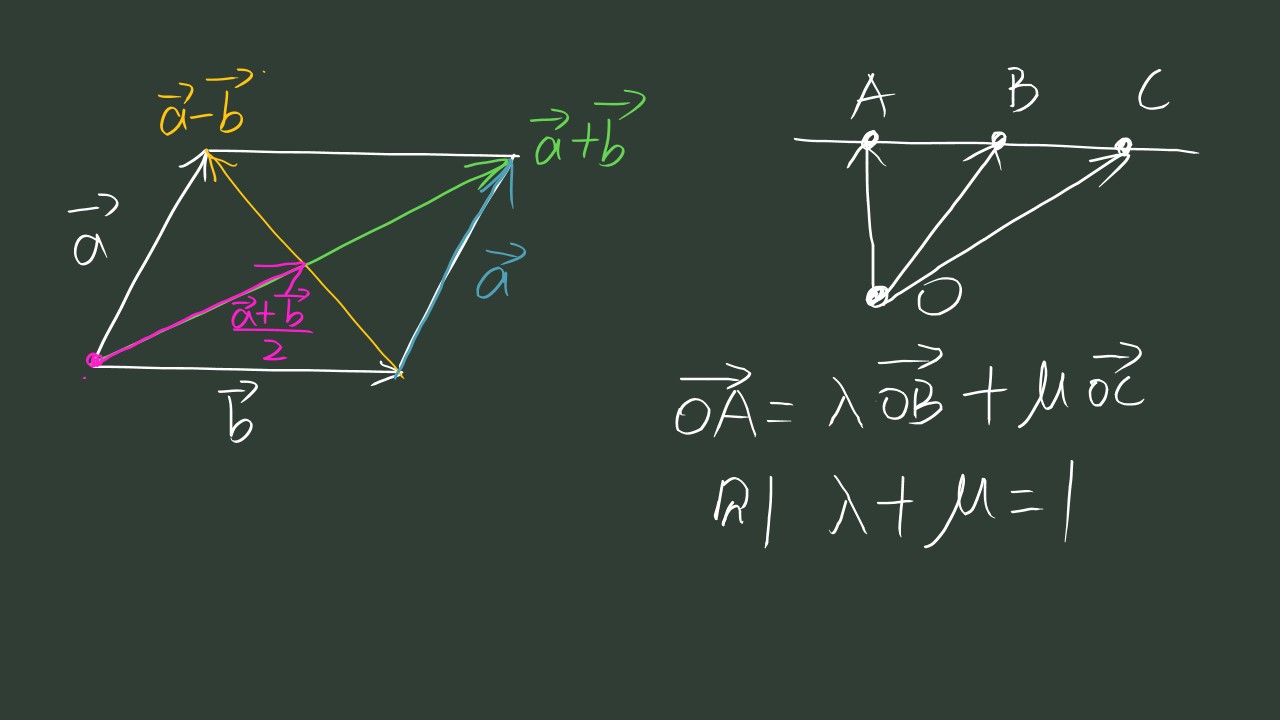 a⃗-b⃗
a⃗+b⃗
a⃗
a⃗
(a⃗+b⃗)/2
b⃗
A B C
O
OA⃗ = λOB⃗ + μOC⃗
则 λ+μ=1